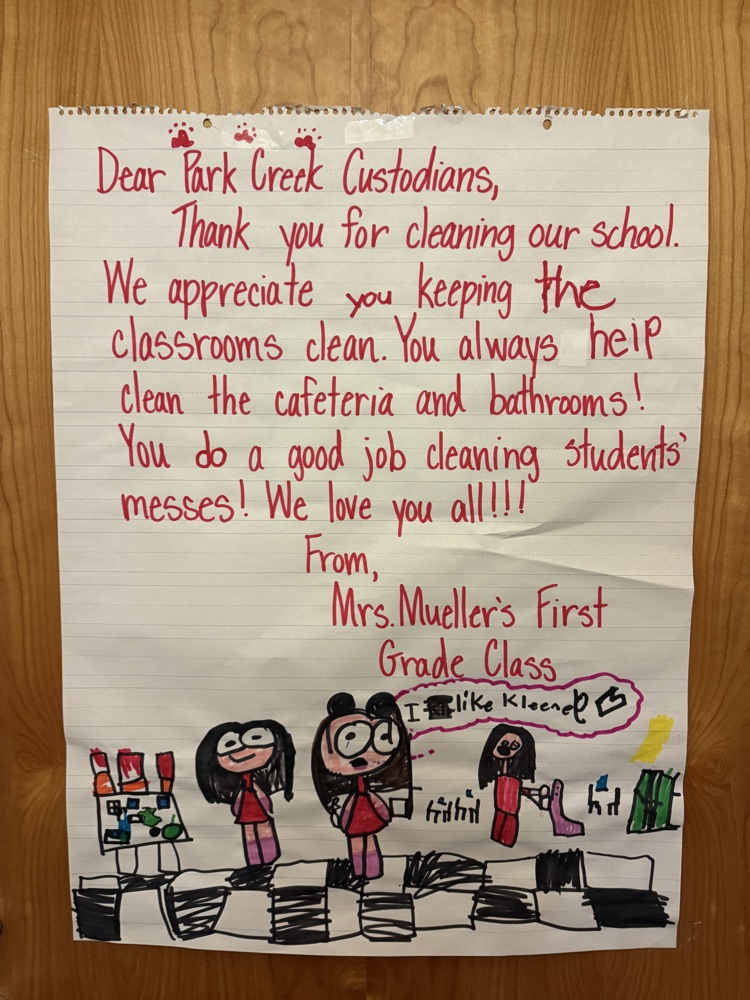 Dear Park Creek Custodians,
Thank you for cleaning our school.
We appreciate you keeping the
classrooms clean. You always help
clean the cafeteria and bathrooms!
You do a good job cleaning students'
messes! We love you all!!!
From,
Mrs. Mueller's First
Grade Class
I like